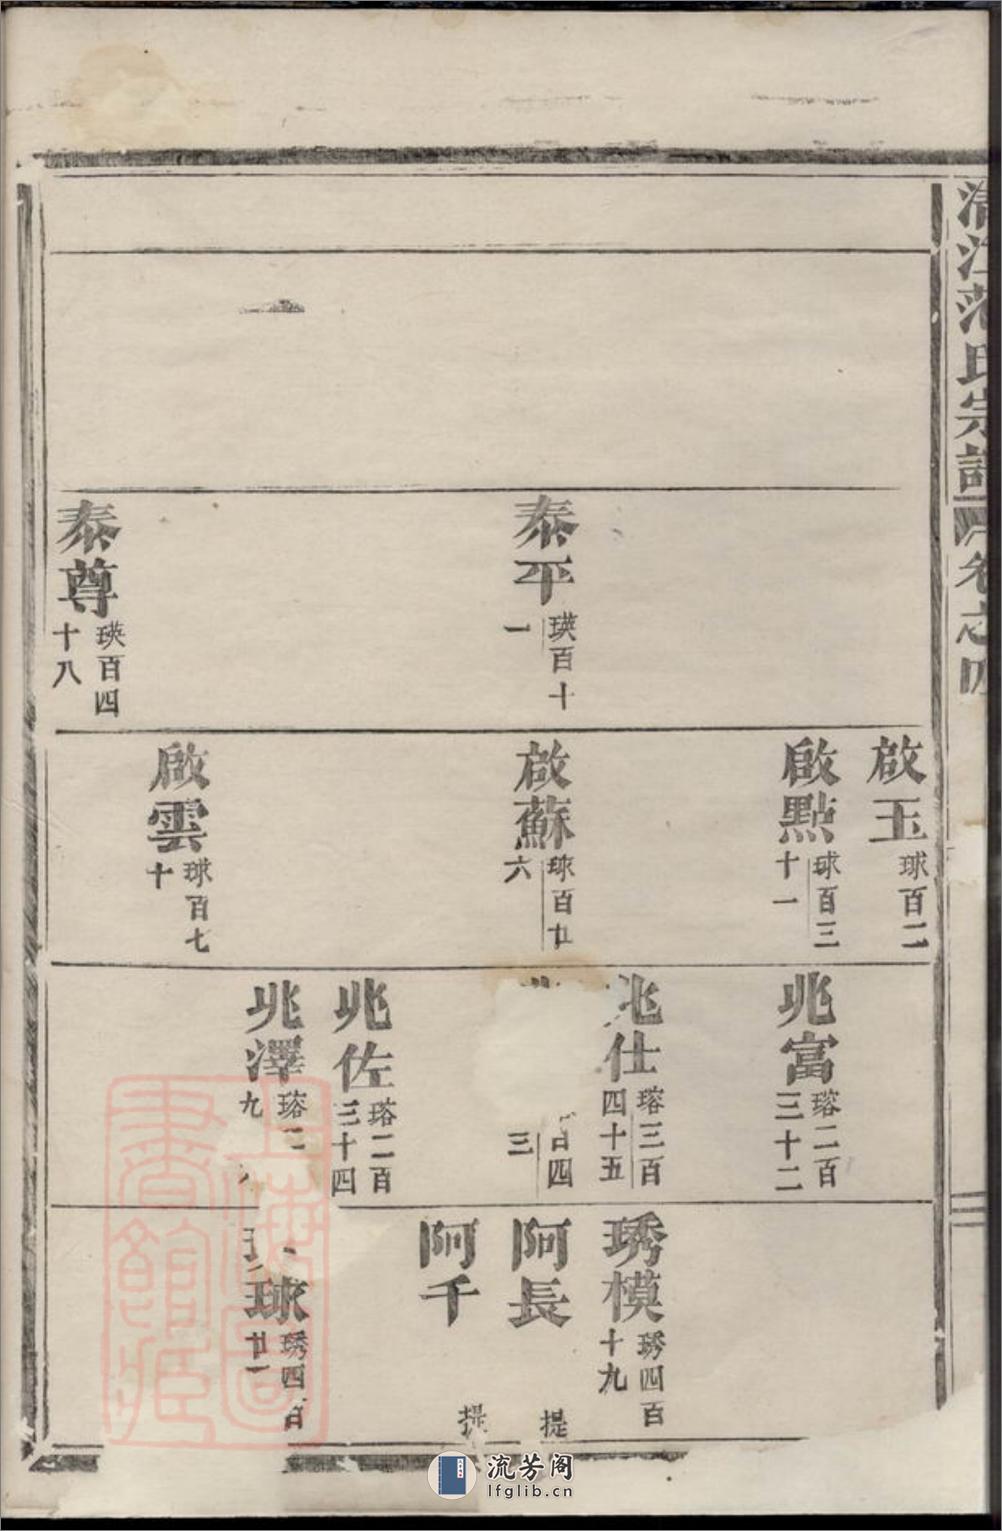 清江范氏宗譜
卷之四
泰平 瑛百十一
泰尊 瑛百四十八
啟玉 球百二
啟點 球百三十一
啟蘇 球百廿六
啟雲 球百七十
兆富 瑢二百三十二
兆仕 瑢三百四十五
百四三
兆佐 瑢二百三十四
兆澤 瑢二 九
琇模 琇四百十九
阿長 提
阿千 提
球 琇四百廿一
上海圖書館藏
流芳阁
lfglib.cn